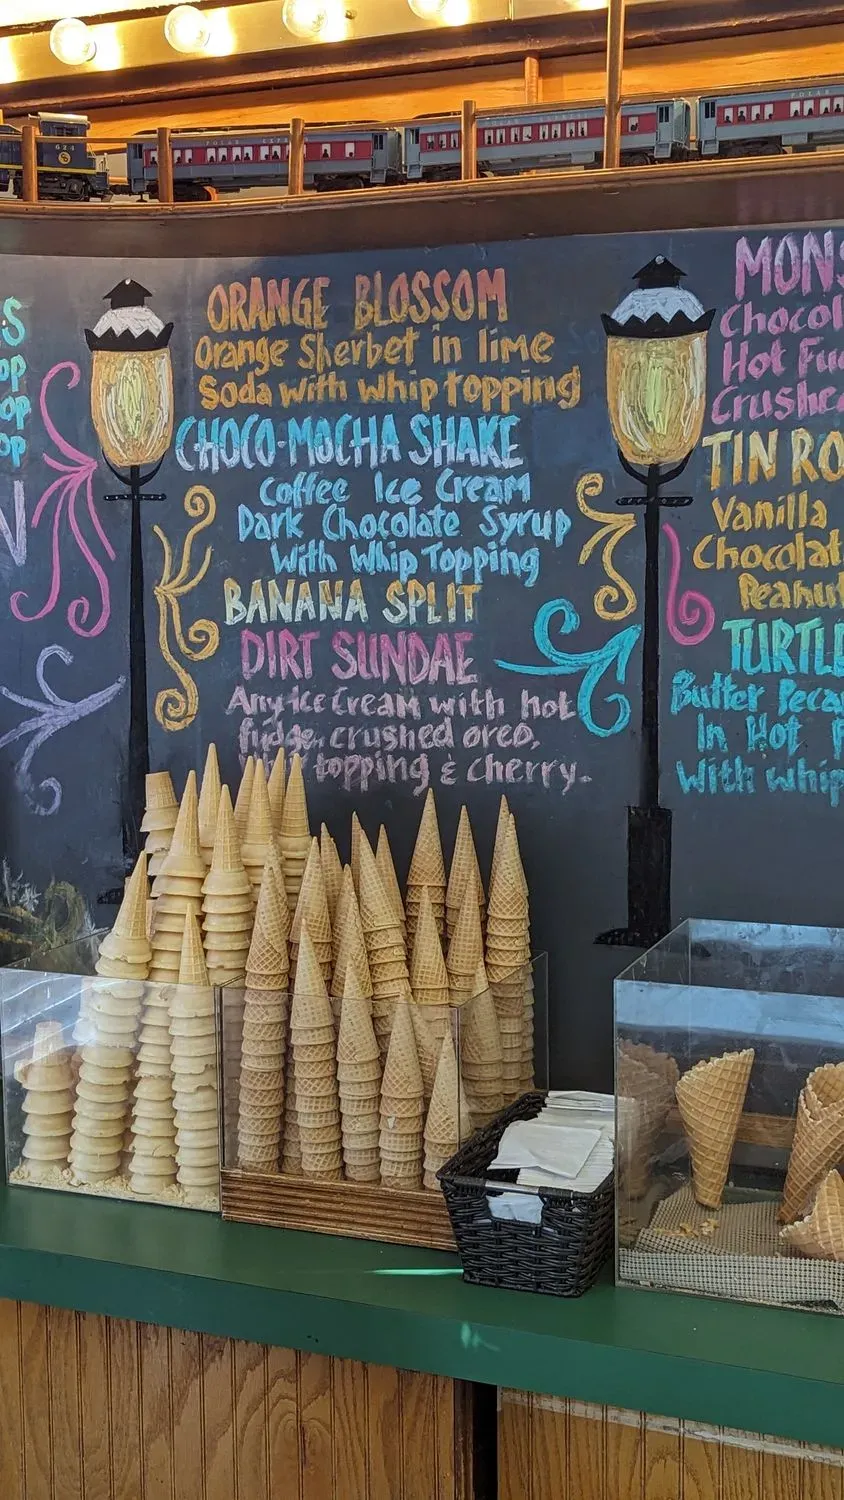 624
POLAR EXPRESS
POLAR EXPRESS
POLAR
S
op
op
op
N
ORANGE BLOSSOM
Orange Sherbet in lime
Soda with whip topping
CHOCO-MOCHA SHAKE
Coffee Ice Cream
Dark Chocolate Syrup
With Whip Topping
BANANA SPLIT
DIRT SUNDAE
Any Ice Cream with hot
fudge, crushed oreo,
topping & cherry.
MONS
Chocol
Hot Fu
Crushe
TIN RO
Vanilla
Chocolat
Peanu
TURTL
Butter Peca
In Hot F
With whip